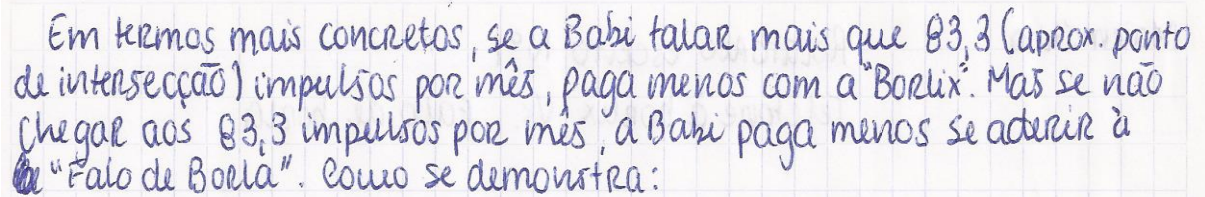 Em termos mais concretos, se a Babi falar mais que 83,3 (aprox. ponto
de intersecção) impulsos por mês, paga menos com a "Borlix". Mas se não
chegar aos 83,3 impulsos por mês, a Babi paga menos se aderir à
"Falo de Borla". Como se demonstra: